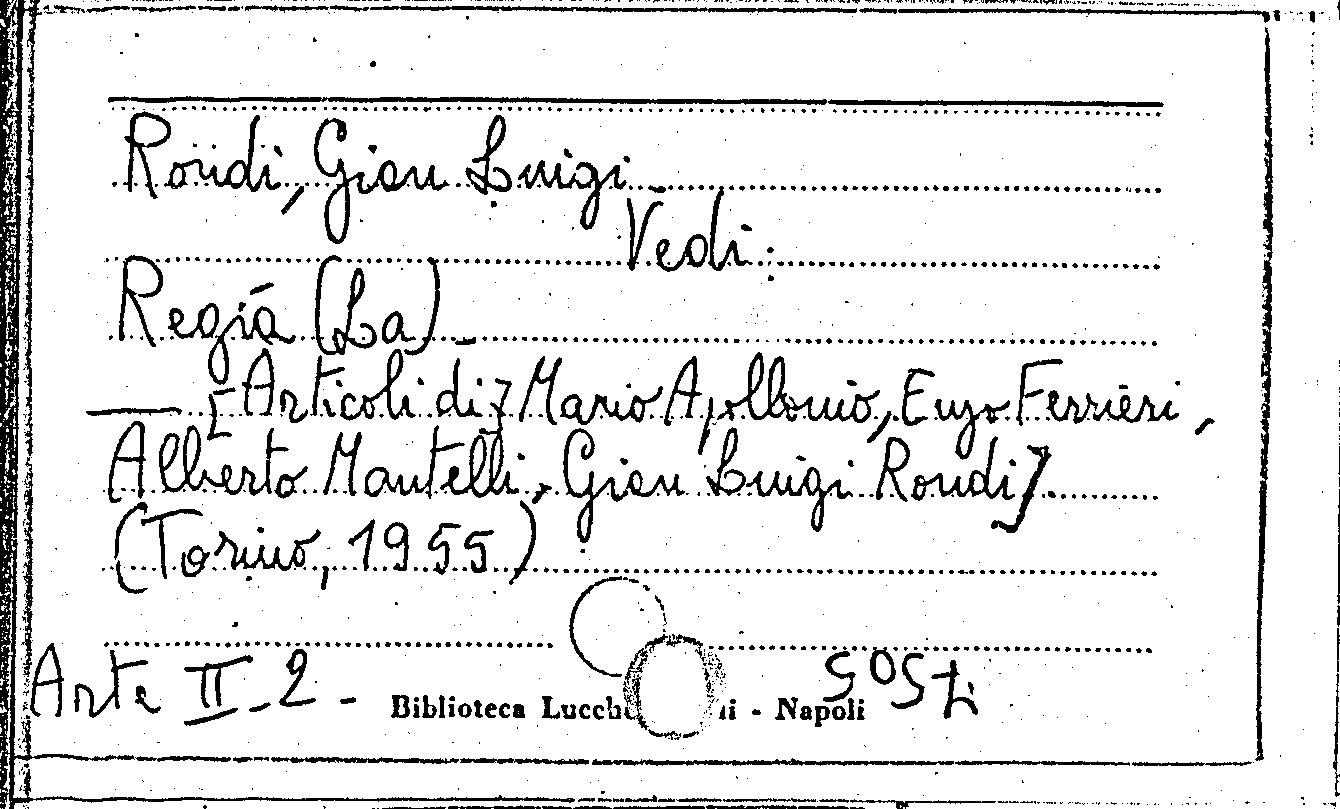 Rondi, Gian Luigi _
Vedi:
Regiá (La) _
— [Articoli di] Mario Apollonio, Enzo Ferrieri,
Alberto Mantelli, Gian Luigi Rondi].
(Torino, 1955)
Arte II-2 - Biblioteca - Napoli